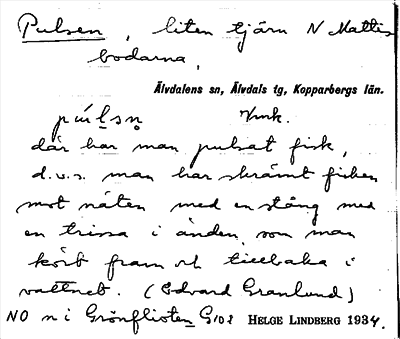 Pulsen, liten tjärn N Mattis
bodarna,
Älvdalens sn, Älvdals tg, Kopparbergs län.
pu̍l̠sn̥
där har man pulsat fisk,
d.v.s. man har skrämt fisken
mot näten med en stång med
en trissa i änden, som man
kört fram och tillbaka i
vattnet. (Edvard Granlund)
NO n i Grönflioten G108 HELGE LINDBERG 1934.